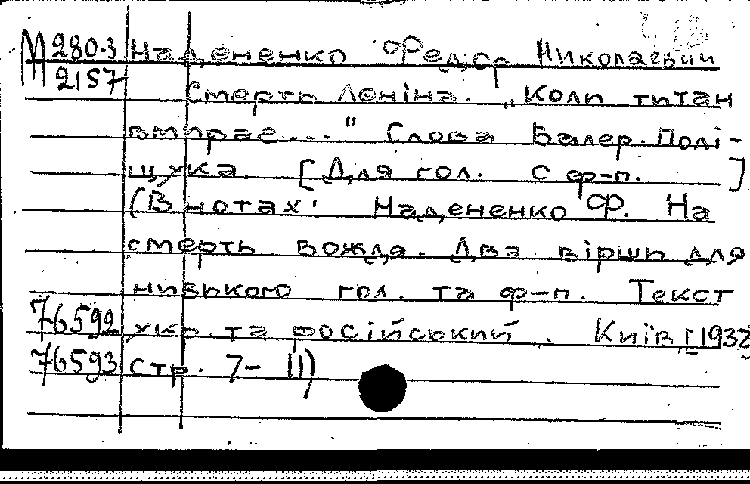 М 280-3 Надененко Федор Николаевич
2157 Смерть Леніна. „Коли титан
вмирає...." Слова Валер. Полі-
щука. [Для гол. с ф-п. ]
(В нотах: Надененко Ф. На
смерть вождя. Два вірши для
низького гол. та ф-п. Текст
76592 укр. та російський. Київ, 1932
76593 стр. 7- 11)